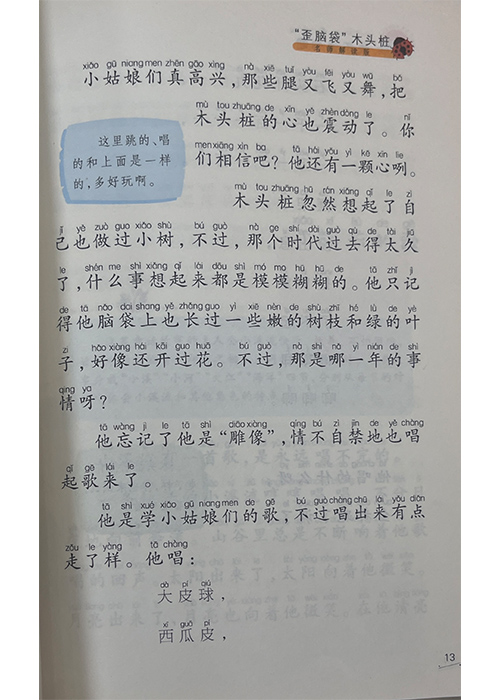 “歪脑袋”木头桩
名师解读版
xiǎo gū niang men zhēn gāo xìng nà xiē tuǐ yòu fēi yòu wǔ bǎ
小姑娘们真高兴，那些腿又飞又舞，把
mù tou zhuāng de xīn yě zhèn dòng le nǐ
木头桩的心也震动了。你
这里跳的、唱
的和上面是一样
的，多好玩啊。
men xiāng xìn ba tā hái yǒu yì kē xīn lie
们相信吧？他还有一颗心咧。
mù tou zhuāng hū rán xiǎng qǐ le zì
木头桩忽然想起了自
jǐ yě zuò guo xiǎo shù bú guò nà ge shí dài guò qù de tài jiǔ
己也做过小树，不过，那个时代过去得太久
le shén me shì xiǎng qǐ lái dōu shì mó mo hū hū de tā zhǐ jì
了，什么事想起来都是模模糊糊的。他只记
de tā nǎo dai shang yě zhǎng guo yì xiē nèn de shù zhī hé lǜ de yè
得他脑袋上也长过一些嫩的树枝和绿的叶
zi hǎo xiàng hái kāi guo huā bú guò nà shì nǎ yì nián de shì
子，好像还开过花。不过，那是哪一年的事
qing ya
情呀？
tā wàng jì le tā shì diāo xiàng qíng bú zì jīn de yě chàng
他忘记了他是“雕像”，情不自禁地也唱
qǐ gē lái le
起歌来了。
tā shì xué xiǎo gū niang men de gē bú guò chàng chū lái yǒu diǎn
他是学小姑娘们的歌，不过唱出来有点
zǒu le yàng tā chàng
走了样。他唱：
dà pí qiú
大皮球，
xī guā pí
西瓜皮，
13